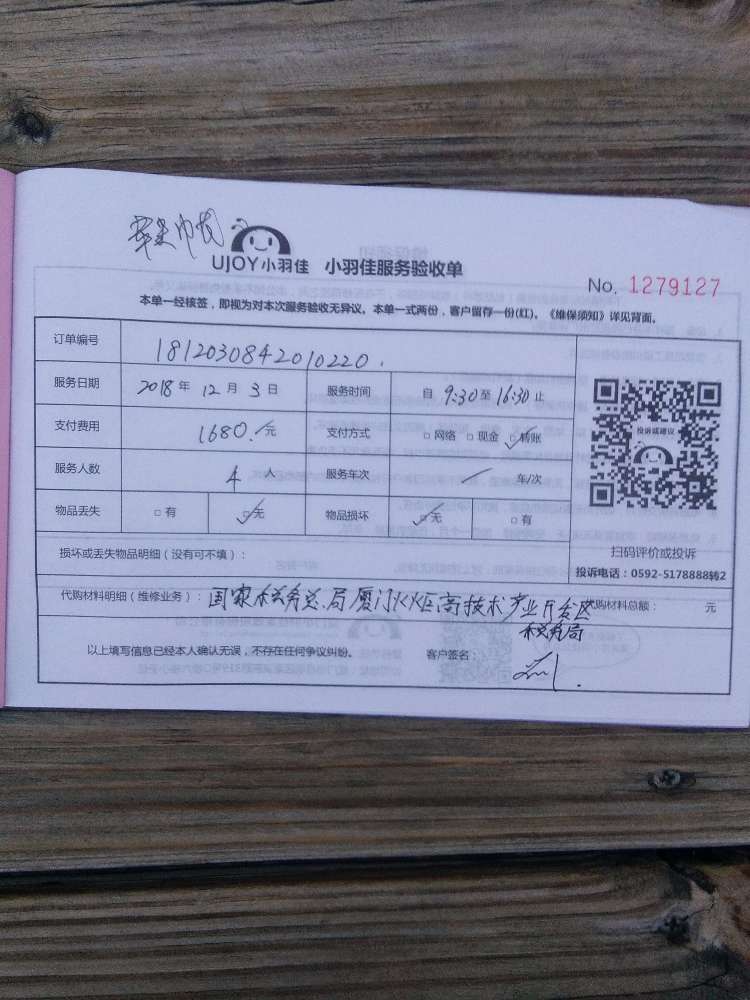 UJOY小羽佳 小羽佳服务验收单
No. 1279127
本单一经核签，即视为对本次服务验收无异议。本单一式两份，客户留存一份(红)。《维保须知》详见背面。
订单编号 1812030842010220.
服务日期 2018年12月3日 服务时间 自9:30至16:30止
支付费用 1680.元 支付方式 □网络 □现金 ☑转账
服务人数 4人 服务车次 ✓ 车/次
物品丢失 □有 ☑无 物品损坏 ☑无 □有
投诉或建议
扫码评价或投诉
投诉电话：0592-5178888转2
损坏或丢失物品明细（没有可不填）：
代购材料明细（维修业务）：国家税务总局厦门火炬高技术产业开发区 代购材料总额： 元
税务局
以上填写信息已经本人确认无误，不存在任何争议纠纷。 客户签名：